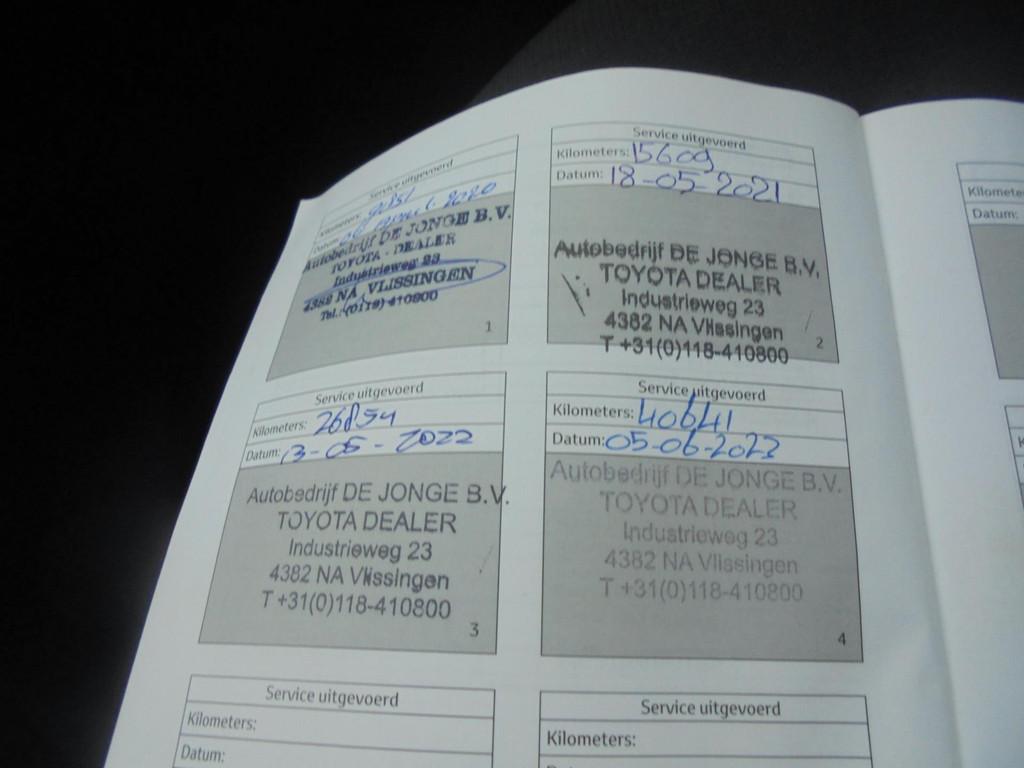 Service uitgevoerd
Kilometers: 9851
Datum: 2020
Autobedrijf DE JONGE B.V.
TOYOTA - DEALER
Industrieweg 23
4382 NA VLISSINGEN
Tel.: (0118) 410800
1
Service uitgevoerd
Kilometers: 15609
Datum: 18-05-2021
Autobedrijf DE JONGE B.V.
TOYOTA DEALER
Industrieweg 23
4382 NA Vlissingen
T +31(0)118-410800
2
Service uitgevoerd
Kilometers: 26854
Datum: 13-05-2022
Autobedrijf DE JONGE B.V.
TOYOTA DEALER
Industrieweg 23
4382 NA Vlissingen
T +31(0)118-410800
3
Service uitgevoerd
Kilometers: 40641
Datum: 05-06-2023
Autobedrijf DE JONGE B.V.
TOYOTA DEALER
Industrieweg 23
4382 NA Vlissingen
T +31(0)118-410800
4
Service uitgevoerd
Kilometers:
Datum:
Service uitgevoerd
Kilometers:
Datum: